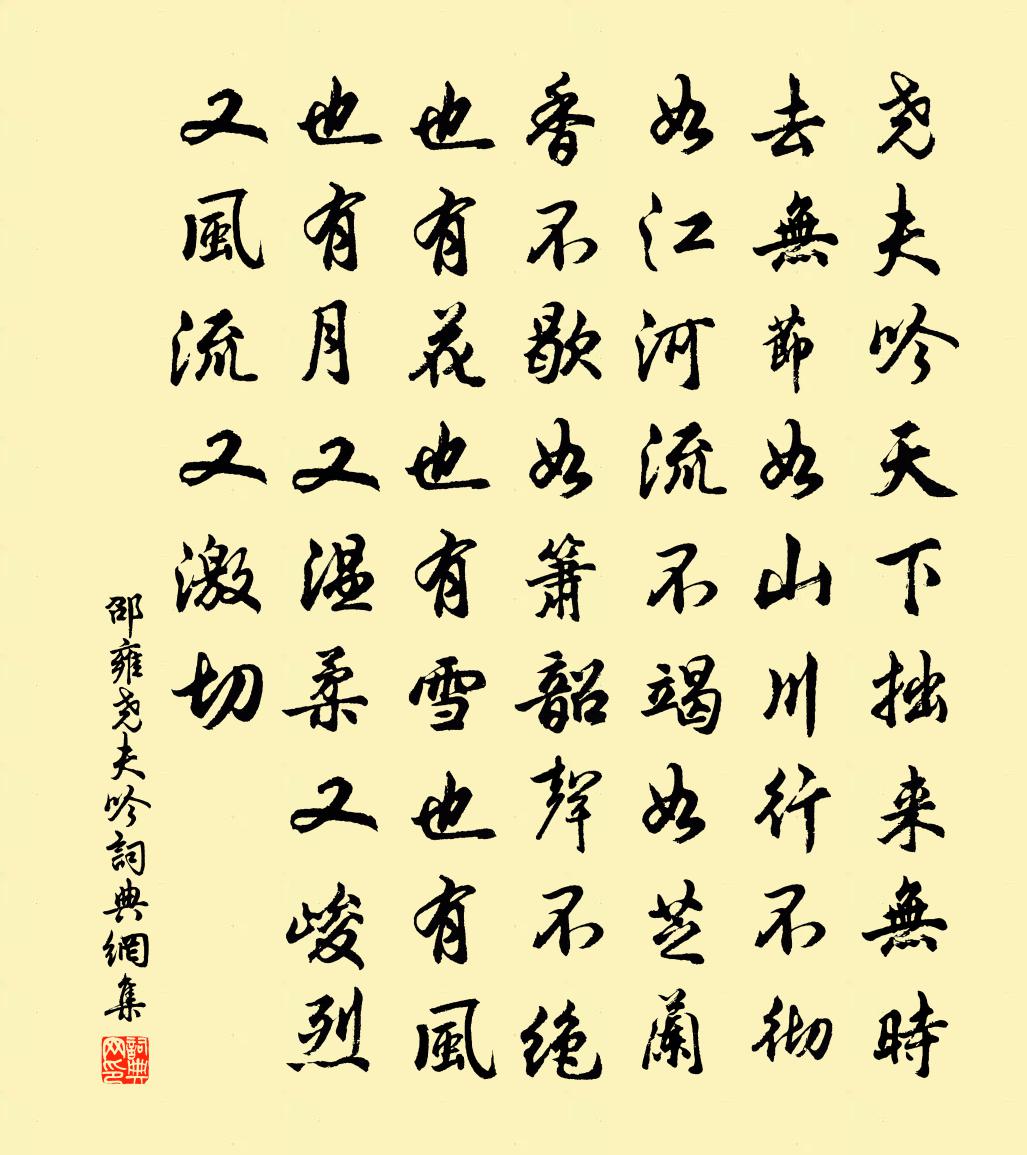 尧夫吟天下拙来無時
去無節如山川行不彻
如江河流不竭如芝蘭
香不歇如箫韶聲不绝
也有花也有雪也有風
也有月又温柔又峻烈
又風流又激切
邵雍尧夫吟詞典網集
詞典网印